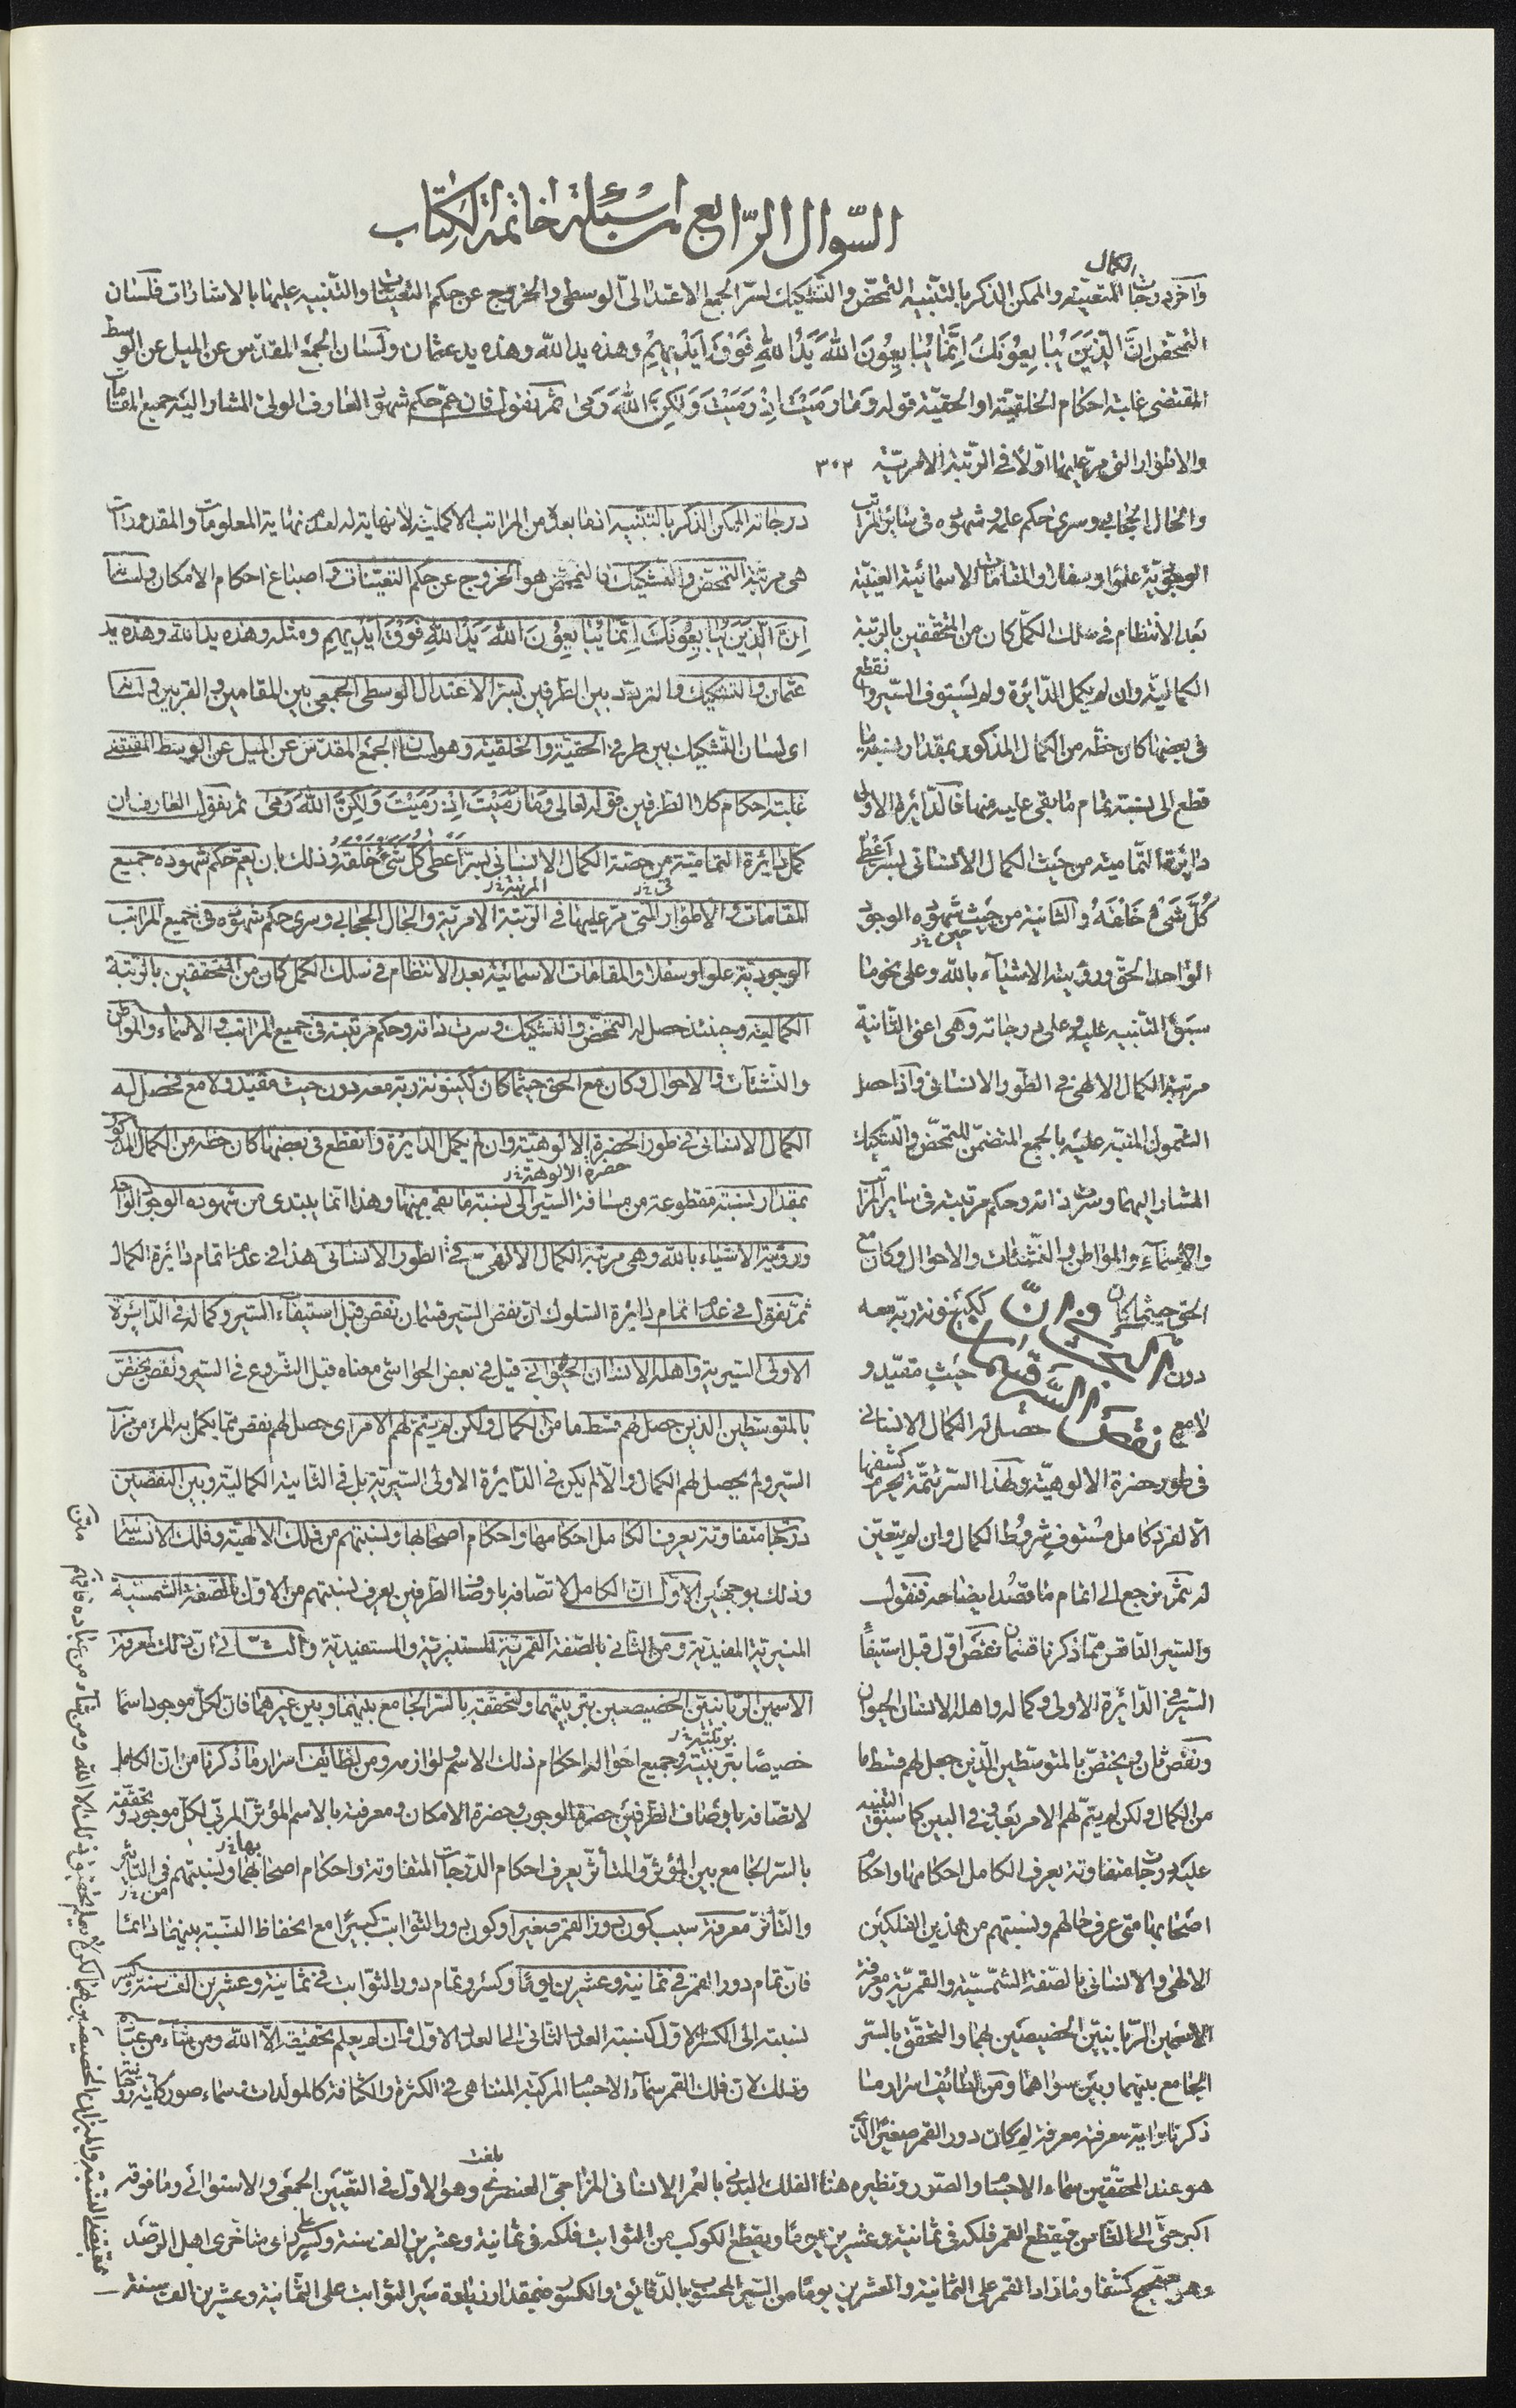 السّوال الرّابع من اسئلة خاتمة الكتاب
وآخر درجات الكمال المتعيّنة والممكن الذكر بالتنبيه التمحّض والتشكيك لسرّ الجمع الاعتدالىّ الوسطى والخروج عن حكم التعينات والتنبيه عليها بالاشارات فلسان
التمحّض انّ الّذينَ يُبايِعُونَكَ اِنَّمٰا يُبٰايِعِوُنَ اللهَ يَدُ اللهِ فَوقَ اَيْديهِمْ وهذه يد الله وهذه يد عثمان ولسان الجمع المقدّس عن الميل عن الوسط
المقتضى غلبة احكام الخلقيّة او الحقيّة قوله وَمٰا رَمَيْتَ اِذْ رَمَيْتَ وَلكِنَّ اللهَ رَمىٰ ثمّ نقول فان عمّ حكم شهود العارف الولىّ المشار اليه جميع المقامات
والاطوار التى مرّ عليها اوّلاً فى الرّتبة الامريّة ٣٠٣
والحال الحجابى وسرى حكم علمه وشهوده فى سائر المراتب
الوجوديّة علوّا وسفلا والمقامات الاسمائية الغيبيّة
بعد الانتظام فى سلك الكمّل كان من المتحققين بالرتبة
الكماليّة وان لم يكمل الدّائرة ولم يستوف السّير وانقطع
فى بعضها كان حظّه من الكمال المذكور بمقدار نسبة ما
قطع الى نسبة تمام ما بقى عليه منها فالدّائرة الاولى
دائرة التّمامية من حيث الكمال الانسانى بسرّ اَعْطىٰ
كُلَّ شَىْءٍ خَلْقَهُ والثانية من حيث شهوده الوجود
الواحد الحقّ ورؤيته الاشيآء بالله وعلى نحو ما
سبق التنبيه عليه وعلى درجاته وهى اعنى الثانية
مرتبة الكمال الالهى فى الطّور الانسانى واذا حصل
الشمول المنبّه عليه بالجمع المتضمّن للتمحّض والتشكيك
المشار اليهما وسرت ذاته وحكم مرتبته فى سائر المراتب
والاسمآء والمواطن والنّشئات والاحوال وكان مع
الحق حيثما كان ككينونة ربّه معه
دون حيث مقيّد و
لا مع حصل له الكمال الانسانى
فى طور حضرة الالوهيّة ولهذا السّر تتمّة يحرم كشفها
الّا لفرد كامل مستوفٍ شروط الكمال وان لم يتعيّن
له ثمّ نرجع الى اتمام ما قصد ايضاحه فنقول
والسّير الناقص ممّا ذكرنا قسمان نقص اوّل قبل استيفآء
السّير فى الدّائرة الاولى وكماله واهله الانسان الحيوان
ونقص ثان ويختصّ بالمتوسّطين الّذين حصل لهم قسط ما
من الكمال ولكن لم يتمّ لهم الامر بعد وفى البين كما سبق التنبيه
عليه درجات متفاوتة يعرف الكامل احكامها واحكام
اصحابها متى عرف حالهم ونسبتهم من هذين الفلكين
الالهى والانسانى بالصّفة الشّمسيّة والقمريّة ومعرفة
الاسمين الرّبانيّين الخصيصين بهما والتحقّق بالسّر
الجامع بينهما وبين سواهما ومن لطائف اسرار ما
ذكرنا وآية معرفته معرفة لم كان دور القمر صغيرًا الّذى
درجاته الممكن الذكر بالتنبيه انما بعده من المراتب الاكمليّة لا نهاية له لعدم نهاية المعلومات والمقدورات
هى مرتبة التمحّض والتشكيك فالتمحّض هو الخروج عن حكم التعيّنات واصباغ احكام الامكان ولسانها
اِنَّ الَّذينَ يُبٰايِعُونَكَ اِنَّمٰا يُبٰايِعُونَ اللهَ يَدُ اللهِ فَوْقَ اَيْديهِم ومثله وهذه يد الله وهذه يد
عثمان والتشكيك والتردّد بين الطّرفين بسرّ الاعتدال الوسطى الجمعى بين المقامين والقربين ولسانه
اى لسان التّشكيك بين طرفى الحقيّة والخلقيّة وهو لسان الجمع المقدّس عن الميل عن الوسط المقتضى
غلبة احكام كلا الطرفين قوله تعالى وَمٰا رَمَيْتَ اِذْ رَمَيْتَ وَلكِنَّ اللهَ رَمىٰ ثمّ نقول العارف ان
كمل دائرة التماميّة من حصّة الكمال الانسانى بسرّ اَعْطىٰ كُلَّ شَىْءٍ خَلْقَهُ وذلك بان يعمّ حكم شهوده جميع
المقامات والاطوار التى مرّ عليها فى الرّتبة الامريّة والحال الحجابى وسرى حكم شهوده فى جميع المراتب
الوجوديّة علوا وسفلا والمقامات الاسمائية بعد الانتظام فى سلك الكمل كان من المتحققين بالرّتبة
الكمالية وحينئذ حصل له التمحّض والتشكيك وسرت ذاته وحكم مرتبته فى جميع المراتب والاسماء والمواطن
والنّشئات والاحوال وكان مع الحق حيثما كان ككينونة ربّه معه دون حيث مقيّد ولا مع فحصل له
الكمال الانسانى فى طور الحضرة الالوهيّة وان لم يكمل الدائرة وانقطع فى بعضها كان حظّه من الكمال المذكور
بمقدار نسبة مقطوعة من مسافة السّير الى نسبة ما بقى منها وهذا انّما يبتدى من شهوده الوجود الواحد
ورؤية الاشياء بالله وهى مرتبة الكمال الالهىّ فى الطور الانسانى هذا فى عدم اتمام دائرة الكمال
ثمّ نقول فى عدم اتمام دائرة السّلوك انّ نقص السّير قسمان نقص قبل استيفآء السّير وكماله فى الدّائرة
الاولى السّيرية واهله الانسان الحيوانى قيل فى بعض الحواشى معناه قبل الشّروع فى السّير ونقص يختصّ
بالمتوسّطين الّذين حصل لهم قسط ما من الكمال ولكن لم يتمّ لهم الامر اى حصل لهم نقص ممّا يكمل به المرء من مزايا
السّير ولم يحصل لهم الكمال والّا لم يكن فى الدّائرة الاولى السّيريّة بل فى الثانية الكماليّة وبين النقصين
درجات متفاوتة يعرف الكامل احكامها واحكام اصحابها ونسبتهم من فلك الالهيّة وفلك الانسانيّة
وذلك بوجهين الاوّل انّ الكامل لاتّصافه باوصاف الطّرفين يعرف نسبتهم من الاوّل بالصّفة الشّمسيّة
المنيريّة المفيديّة ومن الثانى بالصّفة القمريّة المستنيريّة والمستفيديّة والثّانى انّ ذلك لمعرفة
الاسمين الرّبانيّين الخصيصين بتربيتهما ولتحقّقه بالسّر الجامع بينهما وبين غيرهما فانّ لكلّ موجود اسمًا
خصيصًا بتربيته وجميع احواله احكام ذلك الاسم ولوازمه ومن لطائف اسرار ما ذكرنا من انّ الكامل
لاتّصافه باوصاف الطّرفين حضرة الوجوب وحضرة الامكان ومعرفته بالاسم المؤثّر المربّى لكلّ موجود وتحقّقه
بالسّر الجامع بين المؤثّر والمتأثّر يعرف احكام الدّرجات المتفاوتة واحكام اصحابها ونسبتهم فى التأثير
والتأثّر معرفة سبب كون دور القمر صغيرا وكون دور الثوابت كبيرًا مع انحفاظ النّسبة بينهما دائمًا
فانّ تمام دور القمر فى ثمانية وعشرين يومًا وكسر وتمام دور الثّوابت فى ثمانية وعشرين الف سنة وكسر
نسبته الى الكسر الاوّل كنسبة العدد الثانى الى العدد الاوّل وان لم يعلم تحقيقه الّا الله ومن شآء من عباده
وذلك لانّ فلك القمر سمآء الاجسام المركبة المتناهى فى الكثرة والكثافة كالمولدات
هو عند المحقّقين سماء الاجسام والصّور ونظيره هنا الفلك البدنى بالعمر الانسانى المزاجىّ العنصرى وهو الاوّل فى التّعيين الجمعى والاستوائى وما فوقه
اكبر حتّى الى الثّامن فيقطع القمر فلكه فى ثمانية وعشرين يومًا ويقطع الكوكب من الثوابت فلكه فى ثمانية وعشرين الف سنة وكسر على راى متأخرى اهل الرّصد
وهو صحيح كشفا وما زاد القمر على الثمانية والعشرين يومًا من السّير المحسوب بالدّقائق والكسور فبمقدار زيادة سير الثوابت على الثّمانية وعشرين الف سنة